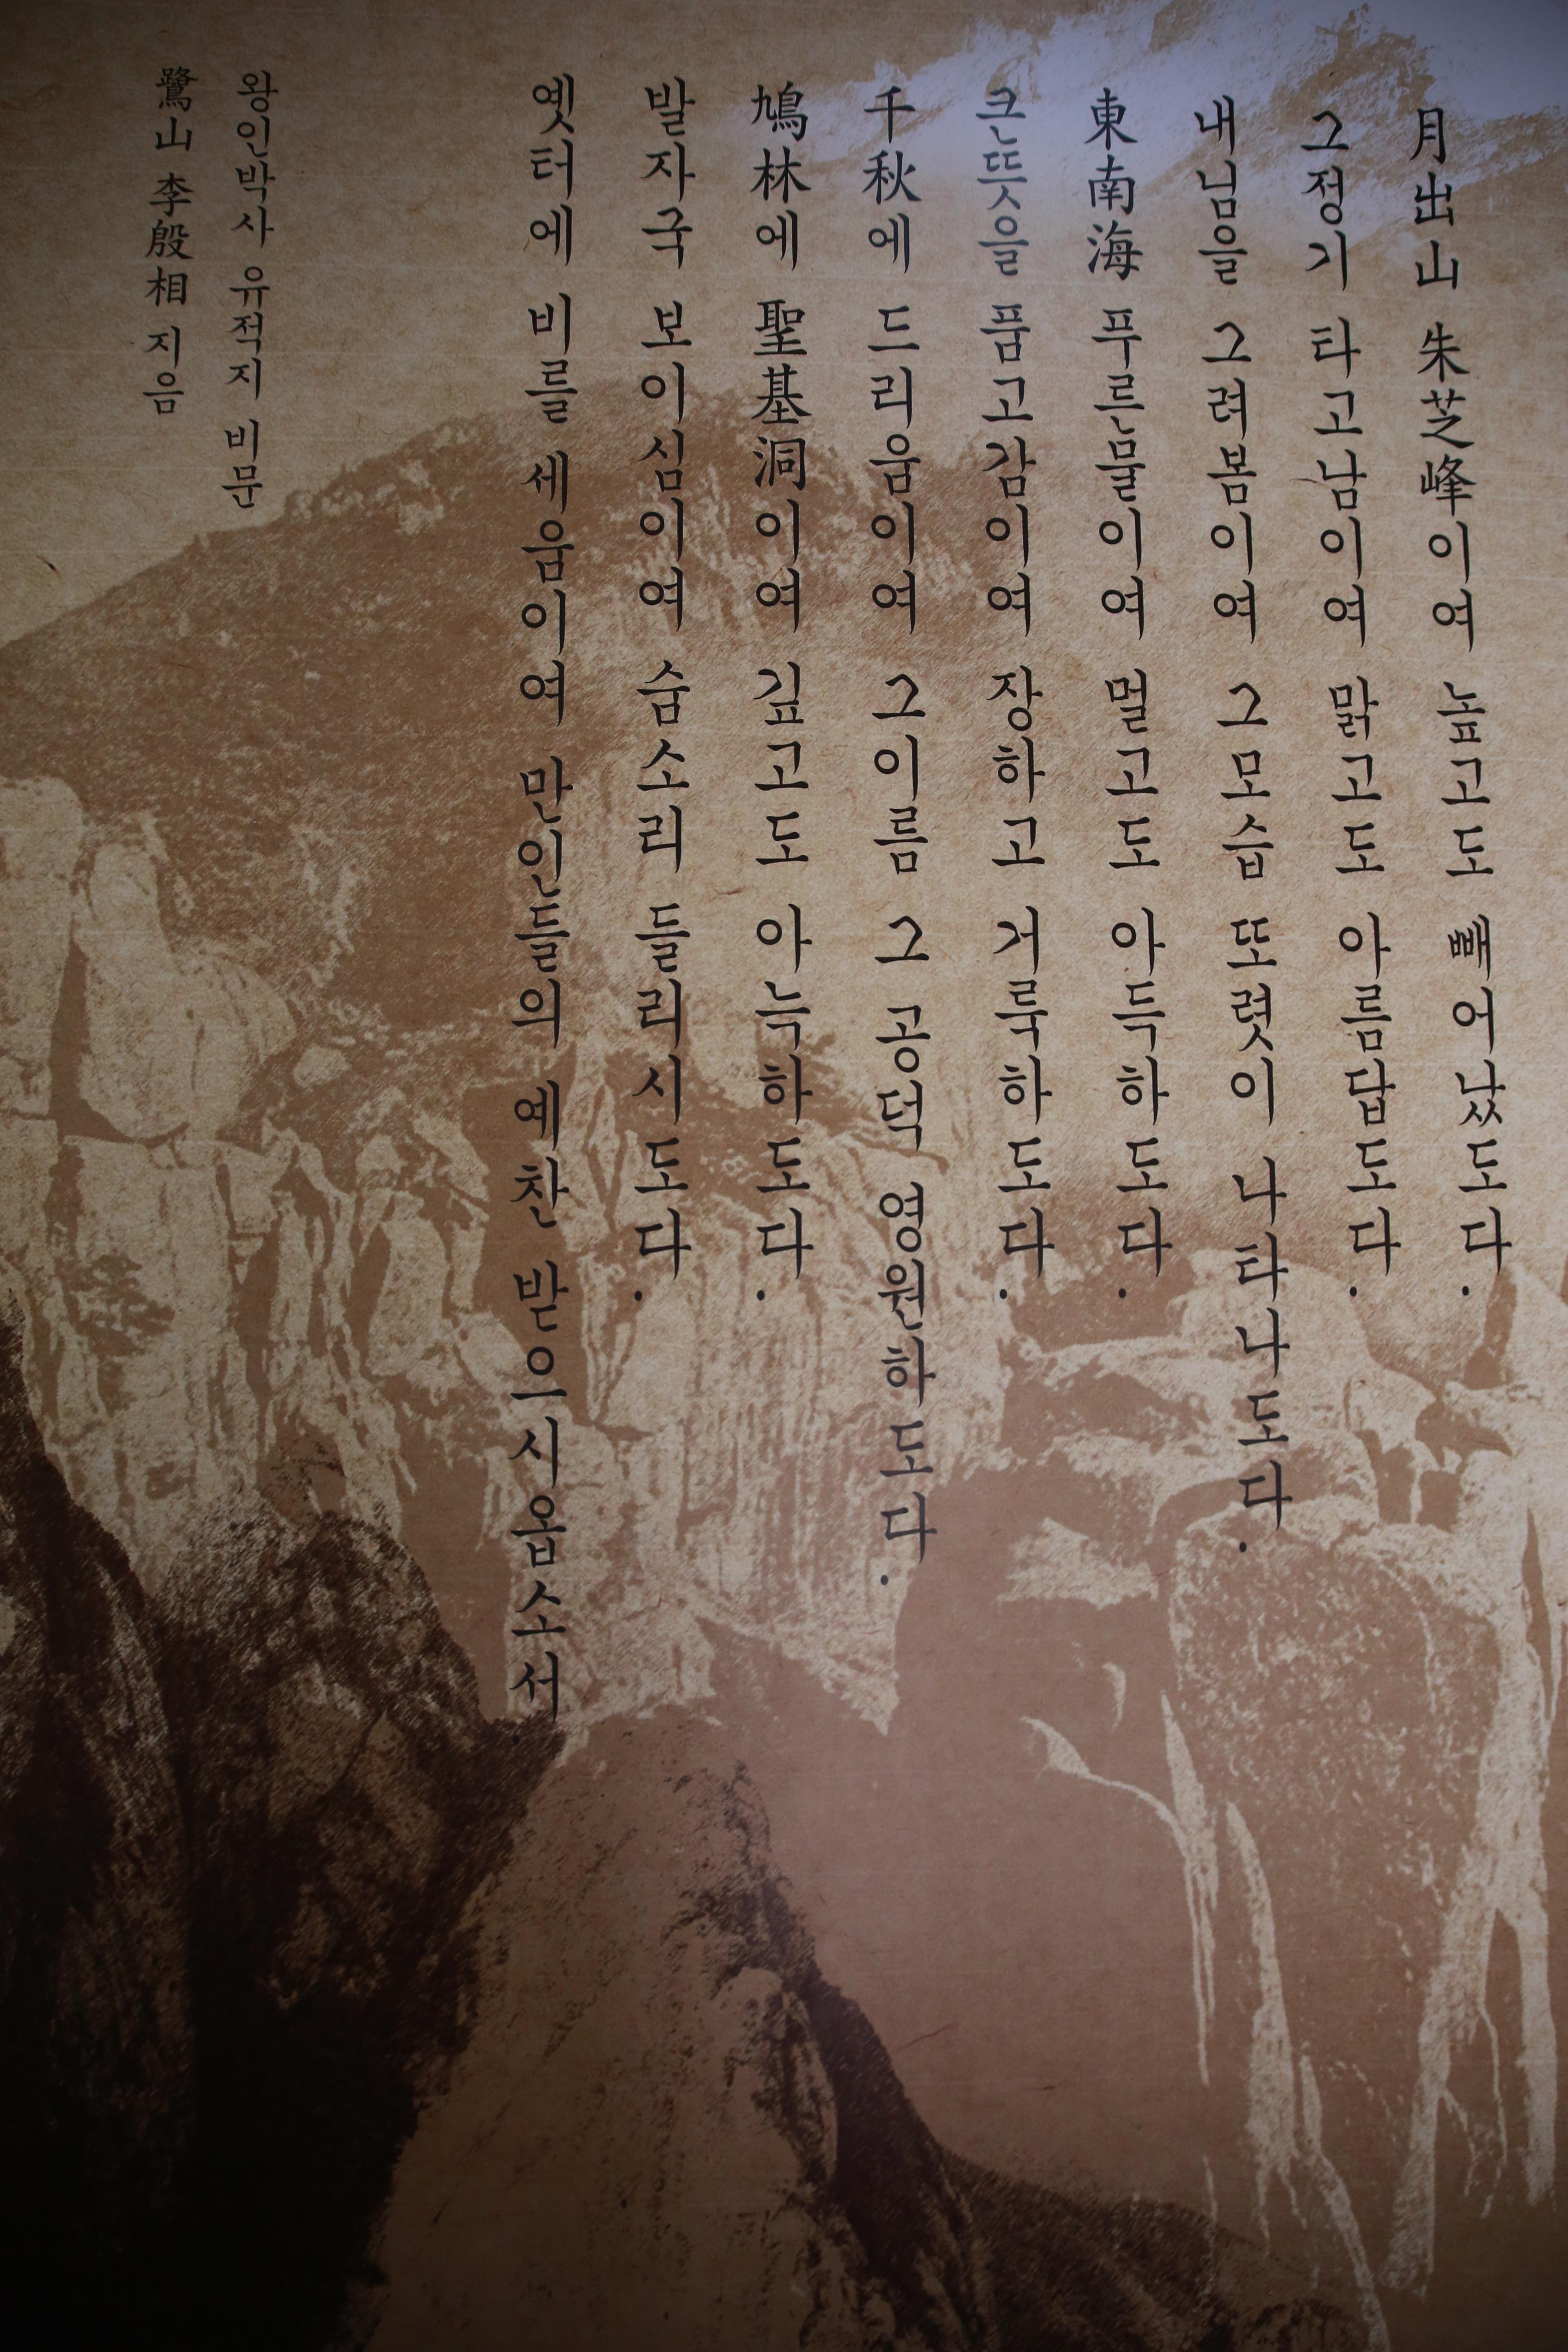 月出山 朱芝峰이여 높고도 빼어났도다.
그정기 타고남이여 맑고도 아름답도다.
내님을 그려봄이여 그모습 또렷이 나타나도다.
東南海 푸른물이여 멀고도 아득하도다.
큰뜻을 품고감이여 장하고 거룩하도다.
千秋에 드리움이여 그이름 그 공덕 영원하도다.
鳩林에 聖基洞이여 깊고도 아늑하도다.
발자국 보이심이여 숨소리 들리시도다.
옛터에 비를 세움이여 만인들의 예찬 받으시옵소서
왕인박사 유적지 비문
鷺山 李殷相 지음